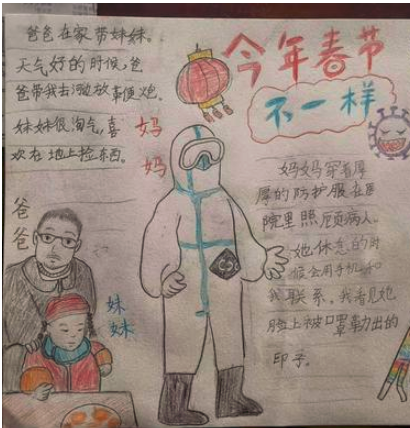 今年春节
不一样
爸爸在家带妹妹。
天气好的时候,爸
爸带我去河边放鞭炮。
妹妹很淘气,喜
欢在地上捡东西。
妈
妈
爸
爸
妹
妹
妈妈穿着厚
厚的防护服在医
院里照顾病人。
她休息的时
候会用手机和
我联系。我看见她
脸上被口罩勒出的
印子。